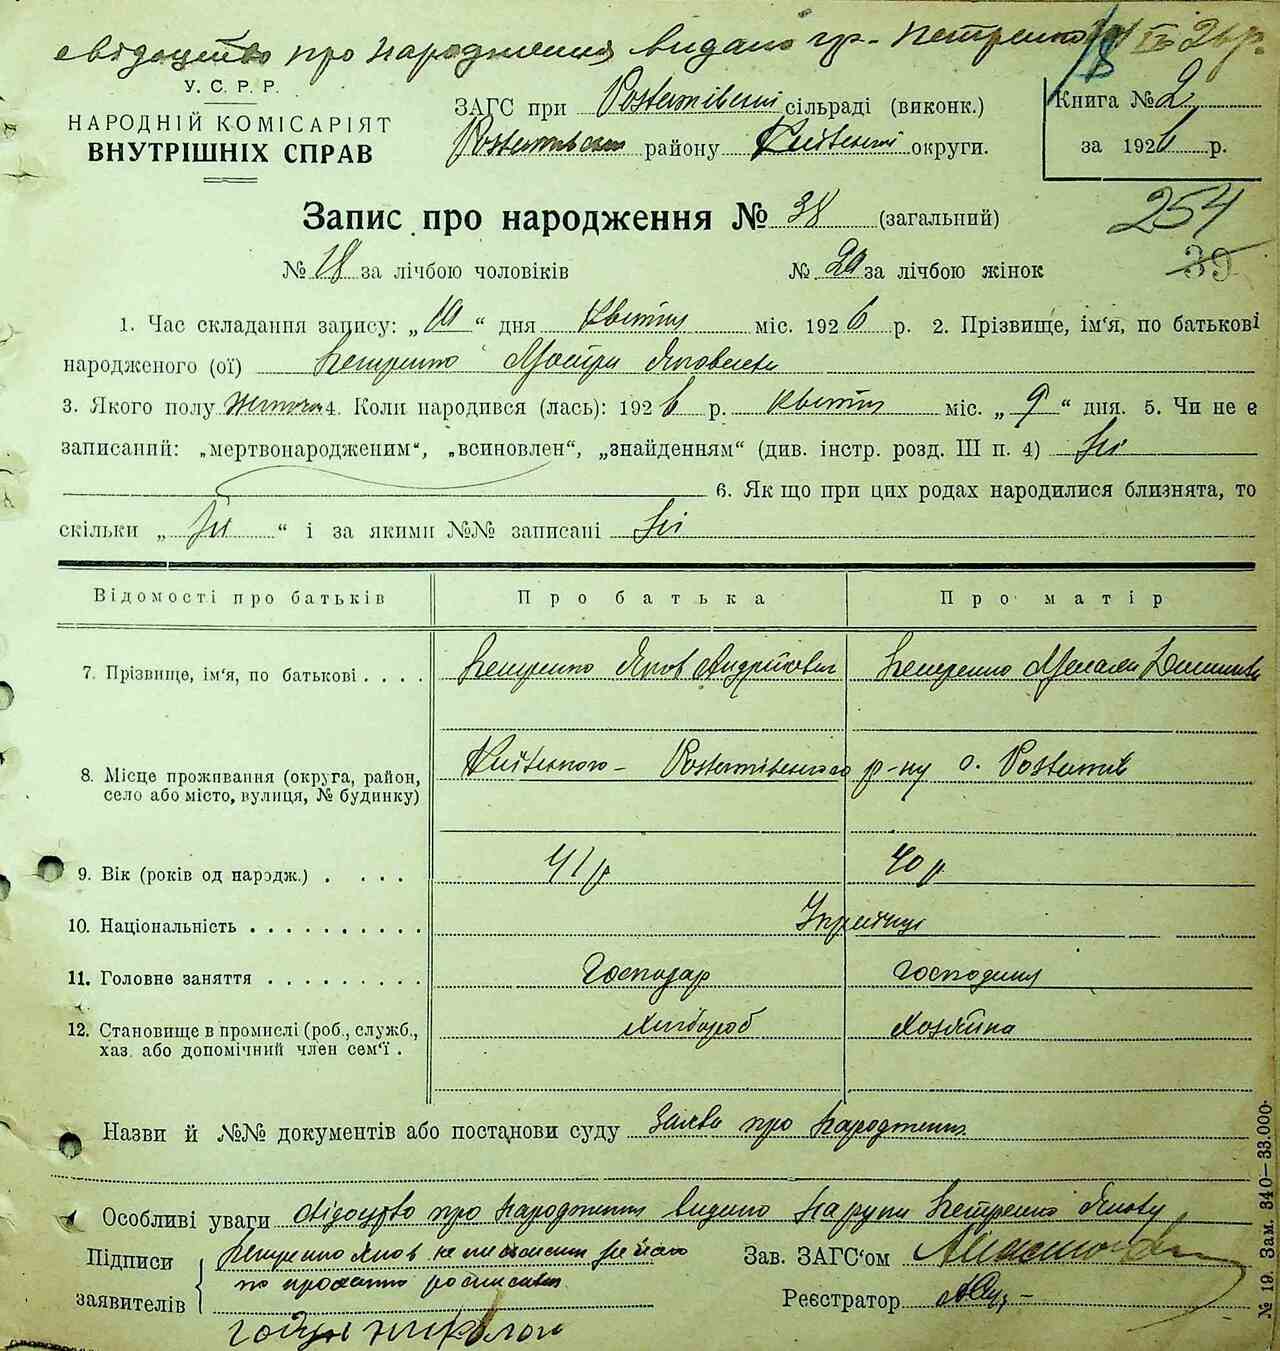 свідоцтво про народження видано гр. Петренко
У. С. Р. Р.
НАРОДНІЙ КОМІСАРІЯТ
ВНУТРІШНІХ СПРАВ
ЗАГС при сільраді (виконк.)
району округи.
Книга № 2
за 1926 р.
Запис про народження № 38 (загальний)
254
39
№ 18 за лічбою чоловіків № 20 за лічбою жінок
1. Час складання запису: „10“ дня Квітня міс. 1926 р. 2. Прізвище, ім‘я, по батькові
народженого (ої) Петренко Яковлевна
3. Якого полу 4. Коли народився (лась): 1926 р. Квітня міс. „9“ дня. 5. Чи не є
записаний: „мертвонародженим“, „всиновлен“, „знайденням“ (див. інстр. розд. III п. 4) Ні
6. Як що при цих родах народилися близнята, то
скільки „Ні“ і за якими №№ записані Ні
Відомості про батьків Про батька Про матір
7. Прізвище, ім‘я, по батькові . . . . Петренко Яков Андрійович Петренко
8. Місце проживання (округа, район,
село або місто, вулиця, № будинку)
р-ну с.
9. Вік (років од народж.) . . . . . 41 р 40 р
10. Національність . . . . . . . . . . Українці
11. Головне заняття . . . . . . . . . Господар Господиня
12. Становище в промислі (роб., служб.,
хаз. або допомічний член сем‘ї . Хлібороб Хозяйка
Назви й №№ документів або постанови суду Заява про народження
Особливі уваги свідоцтво про народження видано на руки Петренко Якову
Підписи
заявителів
Петренко Яков
по проханню росписався
Зав. ЗАГС‘ом
Реєстратор
№ 19. Зам. 340—33.000.